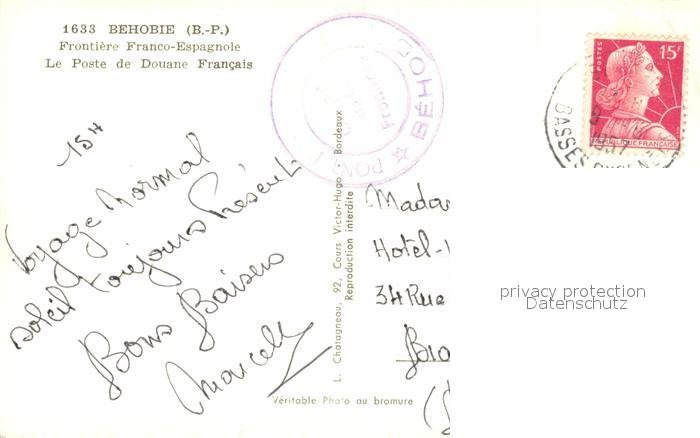 1633 BEHOBIE (B.-P.)
Frontière Franco-Espagnole
Le Poste de Douane Français
15H
Voyage Normal
soleil toujours Présent
Bons Baisers
Marcel
BÉHOB
PONT
L. Chatagneau, 92, Cours Victor-Hugo, Bordeaux
Reproduction interdite
Véritable Photo au bromure
POSTES
15F
REPUBLIQUE FRANÇAISE
BASSES
Hotel-
34 Rue
privacy protection
Datenschutz